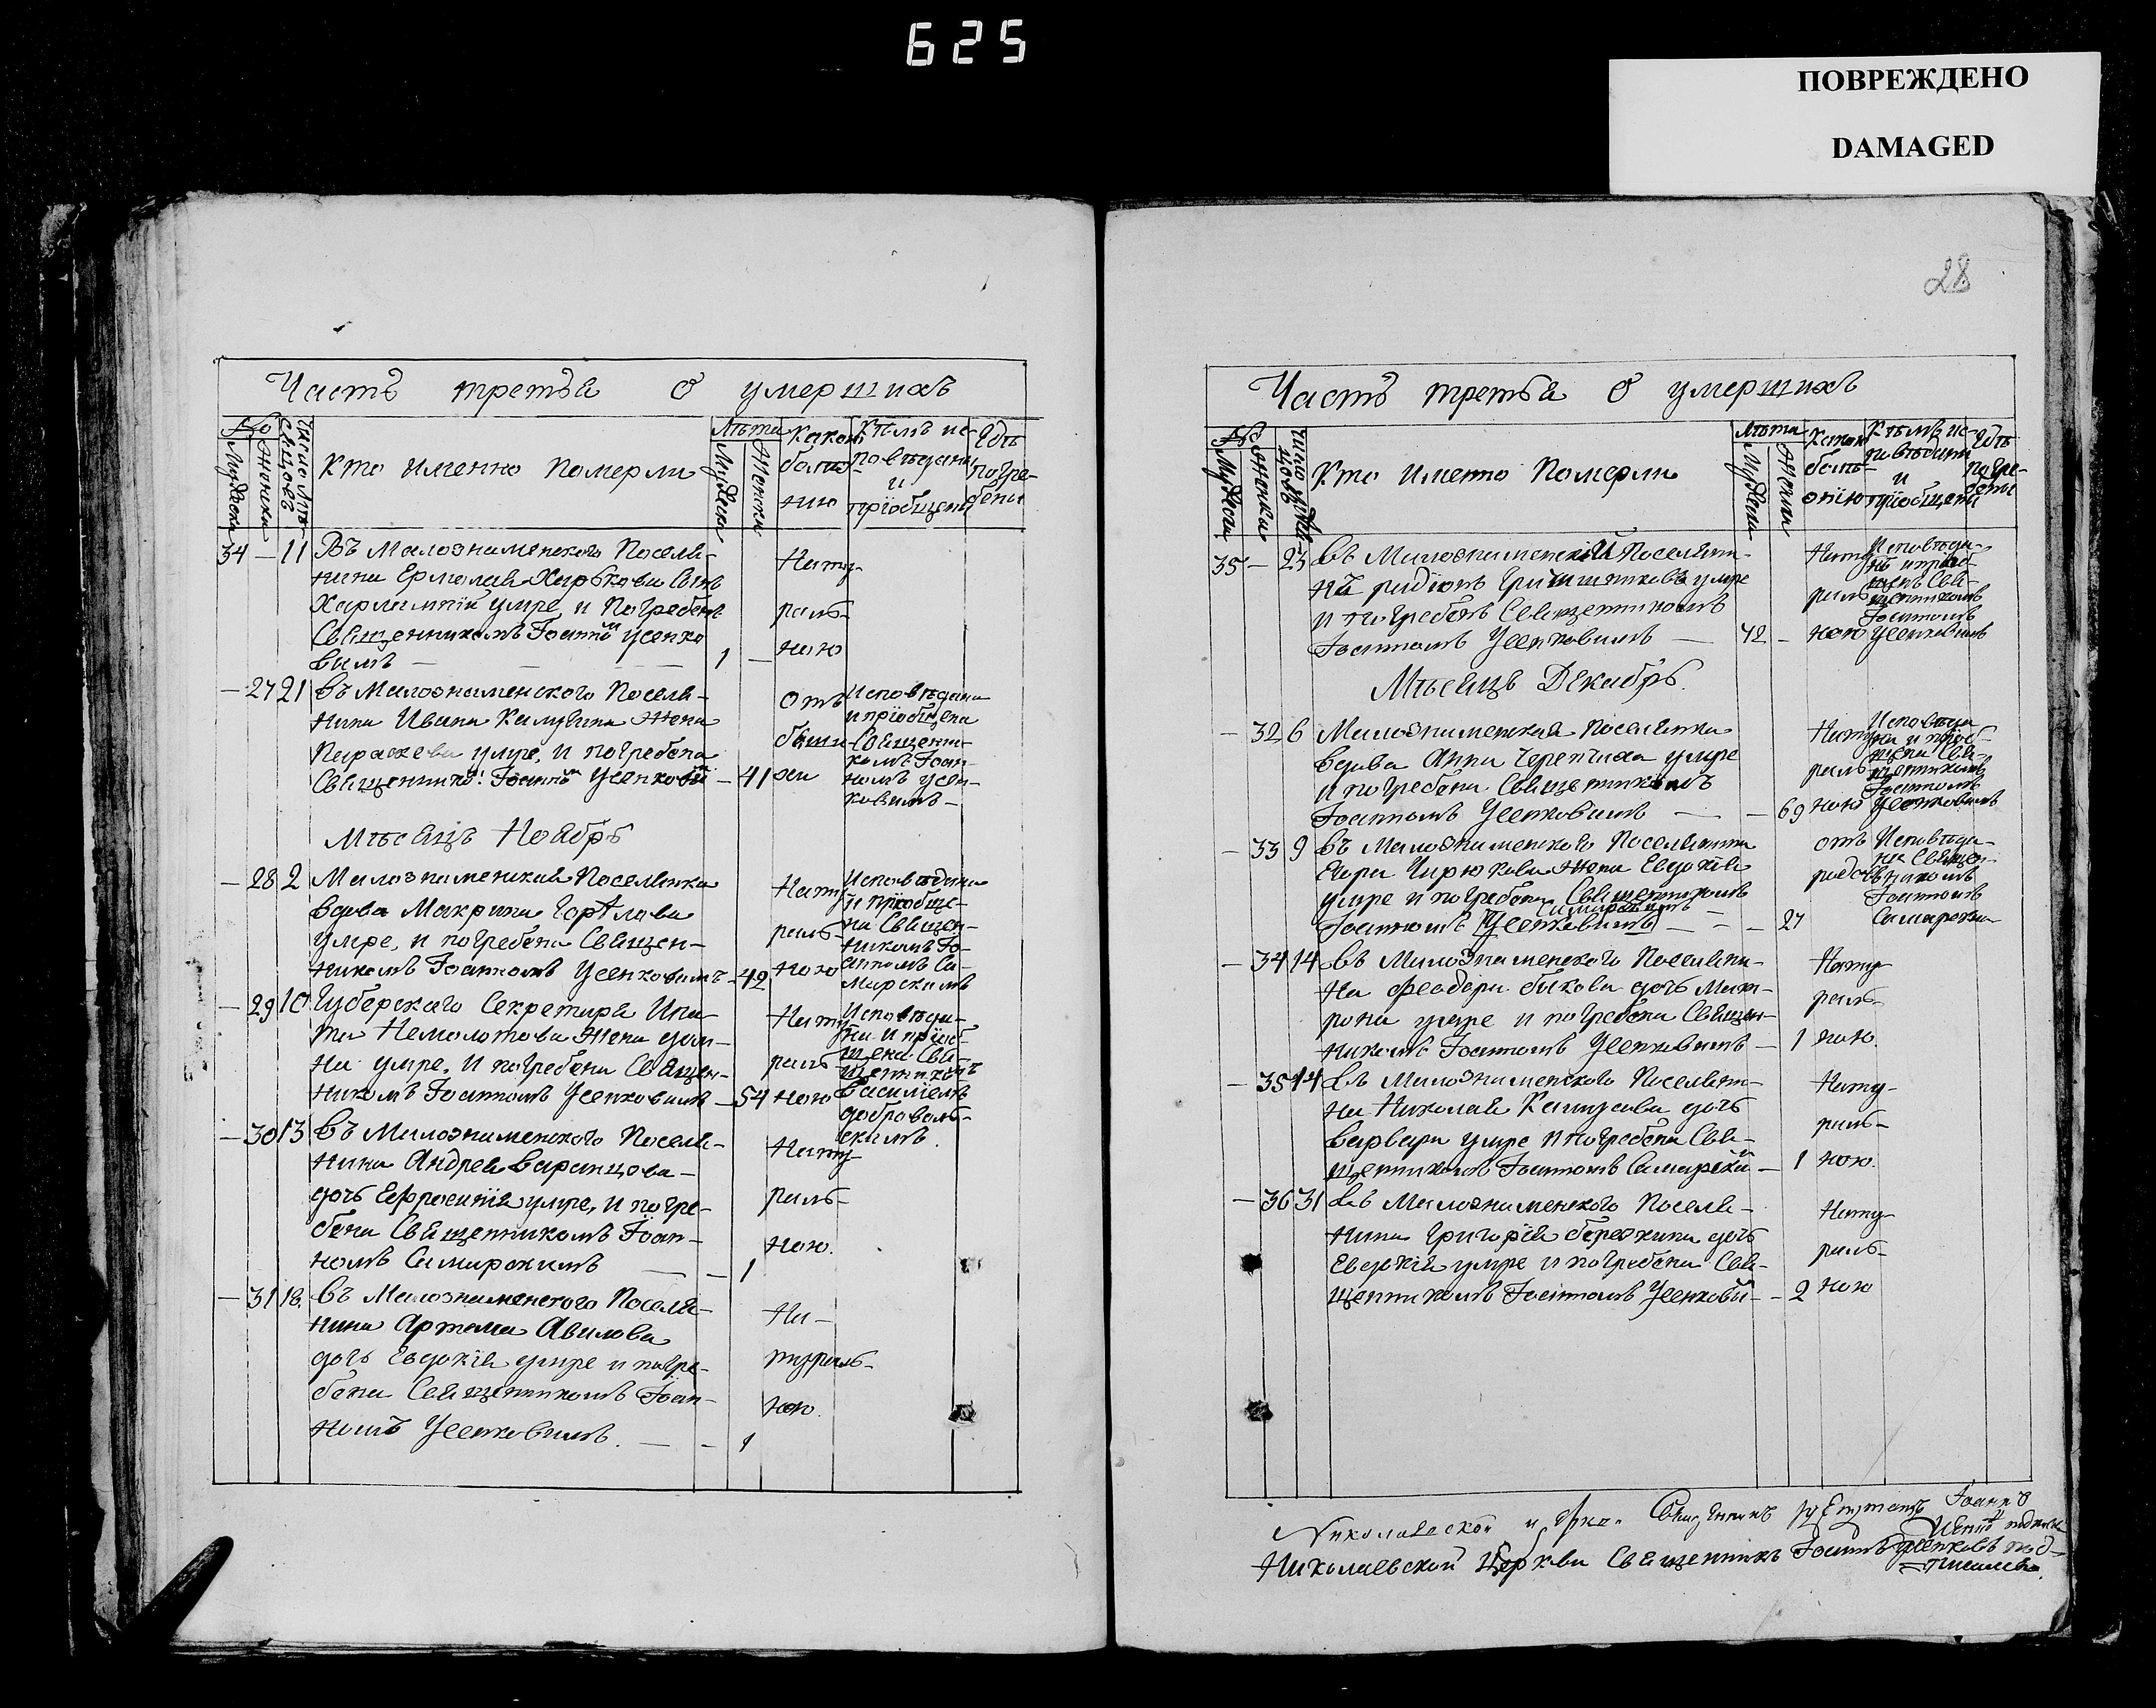 625
ПОВРЕЖДЕНО
DAMAGED
Часть третья О умершихъ
№
Мужеска
Женска
Число
Кто именно Померли
Лѣта
Мужеска
Женска
Какою
болѣ
нию
Кѣмъ ис-
повѣданы
и
пріобщены
Гдѣ
погре-
бены
34 — 11 Въ Малознаменского Поселя-
нина Ермолая Харькова Сынъ
Харлампій умре, и Погребенъ
Священникомъ Іоанномъ Усенко
вымъ — 1 —
Нату-
раль-
ною
— 27 21 Въ Малознаменского Поселя-
нина Ивана Калугина Жена
Параскева умре, и погребена
Священнико: Іоанно Усенковы — 41
Отъ
Исповѣдана
и пріобщена
Священни-
комъ Іоан-
номъ Усен-
ковымъ —
Мѣсяцъ Ноябрь
— 28 2 Малознаменская Поселянка
вдова Макрина Горлова
умре, и погребена Священ-
никомъ Іоанномъ Усенковымъ — 42
Нату-
раль-
ною
Исповѣдана
и приобще-
на Священ-
никомъ Іо-
анномъ Са-
марскимъ
— 29 10 Губерского Секретаря Ипа-
та Немолотова Жена
умре, и погребена Священ-
никомъ Іоанномъ Усенковымъ — 54
Нату-
раль-
ною
Исповѣда-
на и пріоб-
щена Свя-
щенникомъ
Василіемъ
Доброволь-
скимъ
— 30 13 Въ Малознаменского Поселя-
нина Андрея Варанцова —
дочь Ефросинія умре, и погре-
бена Священникомъ Іоан-
номъ Самарскимъ — — 1
Нату-
раль-
ною.
— 31 18. Въ Малознаменского Поселя-
нина Артема Авилова
дочь Евдокія умре и погре-
бена Священникомъ Іоан-
номъ Усенковымъ. — — 1
На-
тураль-
ною.
28
Часть третья О умершихъ
№
Мужеска
Женска
Число
Кто именно Померли
Лѣта
Мужеска
Женска
Какою
болѣ-
знію
Кѣмъ ис-
повѣданы
и
пріобщены
Гдѣ
погре-
бены
35 — 23 Въ Малознаменскій Поселяни-
нъ
умре
и погребенъ Священникомъ
Іоанномъ Усенковымъ — 42 —
Нату-
раль-
ною
Исповѣда-
нъ и пріоб-
щенъ Свя-
щенникомъ
Іоанномъ
Усенковымъ
Мѣсяцъ Декабрь.
— 32 6 Малознаменская Поселянка
вдова Анна Черепчиха умре
и погребена Священникомъ
Іоанномъ Усенковымъ — — 69
Нату-
раль-
ною
Исповѣда
на и пріоб-
щена Свя-
щенникомъ
Іоанномъ
Усенковымъ
— 33 9 Въ Малознаменского Поселянина
Жена Евдокія
умре и погребена Священникомъ
Самарскимъ
Іоанномъ Усенковымъ — — — 27
отъ
родовъ
Исповѣда-
на Священ-
никомъ
Іоанномъ
Самарским
— 34 14 Въ Малознаменского Поселяни-
на Феодора Быкова дочь Мат-
рона умре и погребена Священ-
никомъ Іоанномъ Усенковымъ — 1
Нату-
раль-
ною.
— 35 14 Въ Малознаменского Поселяни-
на Николая дочь
Варвара умре и погребена Свя-
щенникомъ Іоанномъ Самарски — 1
Нату-
раль-
ною.
— 36 31 Въ Малознаменского Поселя-
нина Григорія Бережина дочь
Евдокія умре и погребена Свя-
щенникомъ Іоанномъ Усенковы — 2
Нату-
раль-
ною
Николаевской Священникъ Іоаннъ
Николаевской Церкви Священникъ Іоаннъ Усенковъ под-
писался.